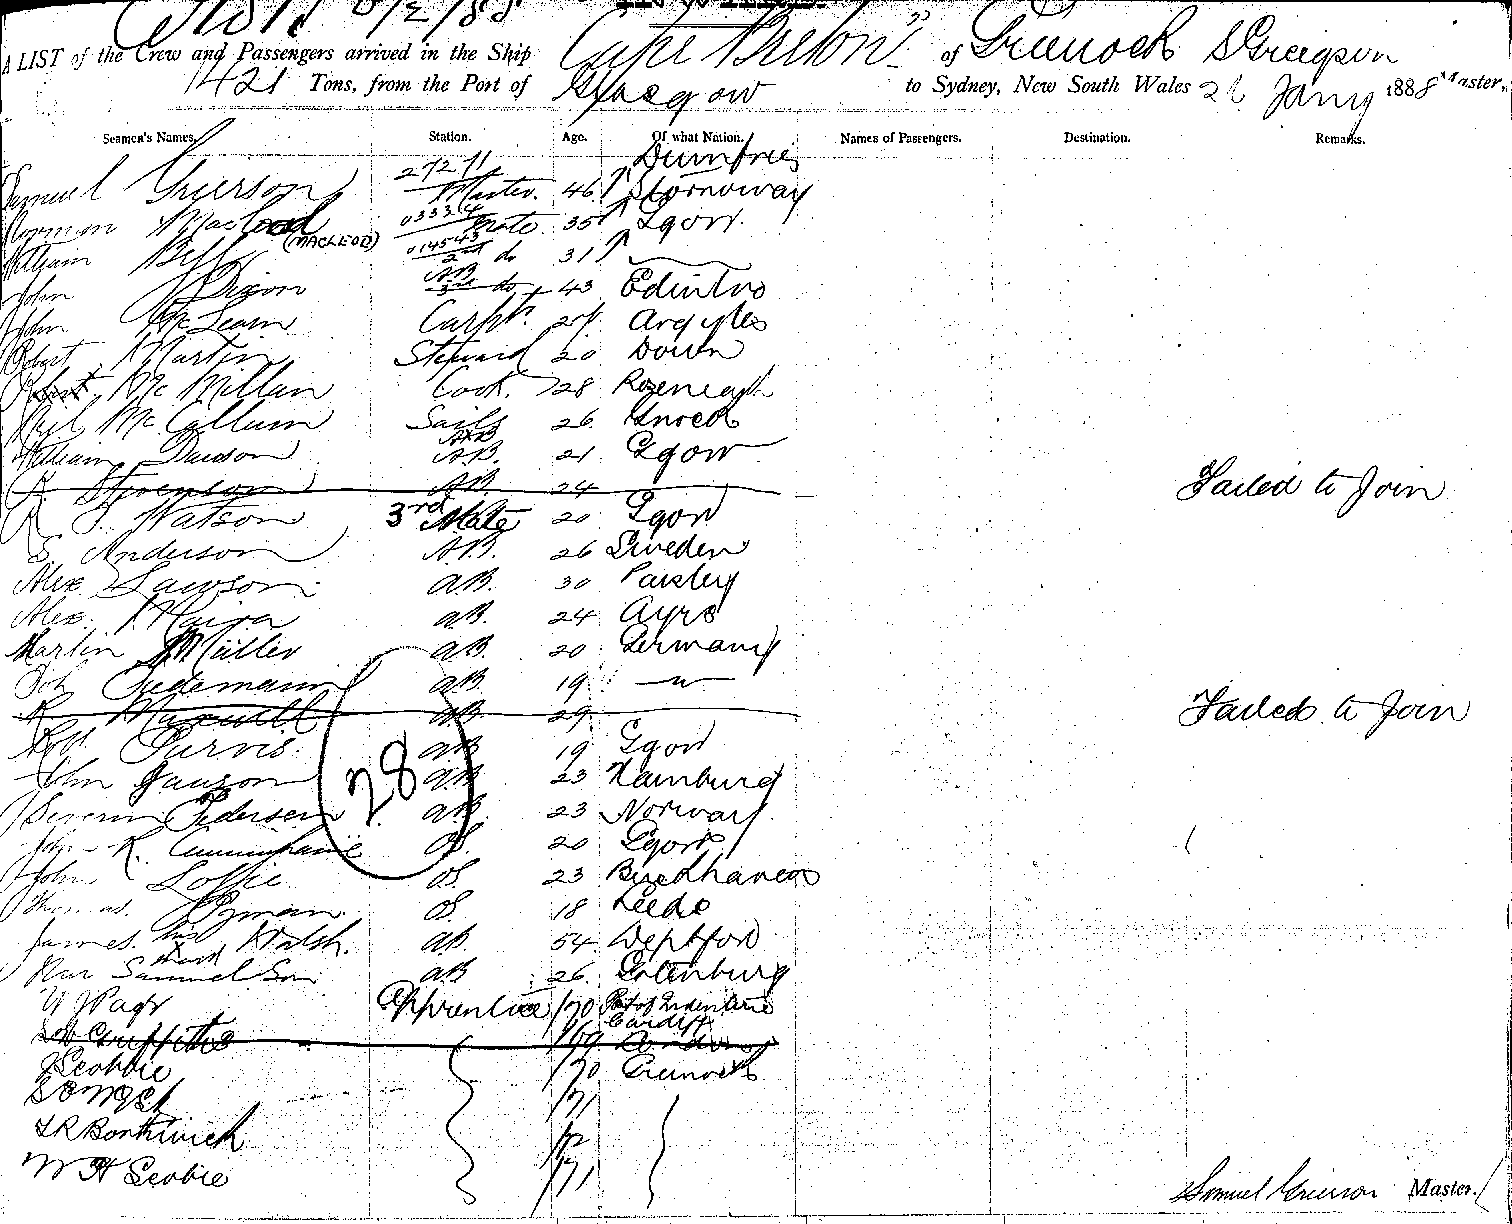 A LIST of the Crew and Passengers arrived in the Ship "Cape Breton" of Greenock S Grierson Master,
1421 Tons, from the Port of Glasgow to Sydney, New South Wales 26 Jany 1888
Seamen's Names. Station. Age. Of what Nation. Names of Passengers. Destination. Remarks.
Samuel Grierson Master. 46 Dumfries
Norman Macleod (MACLEOD) Mate 35 Stornoway
William Bell 2nd do 31 Ggow
John Dixon AB 43 Edinbro
John McLean Carptr. Argyle
Robert Martin Steward 20 Down
Robert McMillan Cook. 28 Roseneath
Neil McCallum Sails 26 Gnock
William Dawson AB. 21 Ggow
R Stevenson AB 24 Failed to Join
R J. Watson 3rd Mate 20 Ggow
Anderson A.B. 26 Sweden
Alex Lawson aB. 30 Paisley
Alex. aB. 24 Ayre
Martin Müller aB. 20 Germany
Joh Tiedemann aB. 19 — " —
R Maxwell aB 29 Failed to Join
Robt. Purvis. aB 19 Ggow
John aB. 23 Hamburg
Severin Pedersen aB. 23 Norway
John R. Cunninghame OS. 20 Ggow
John Loffie OS. 23 Buckhaven
Thomas. Pyman OS. 18 Leeds
James. his mark Walsh. aB. 54 Deptford
Samuel Son aB 26 Gotenburg
28
Apprentice /70 Port of Indenture Cardiff
Griffiths /69 London
J Scobbie /70 Greenock
/71
Borthwick /72
W H Scobie /71
Samuel Grierson Master.